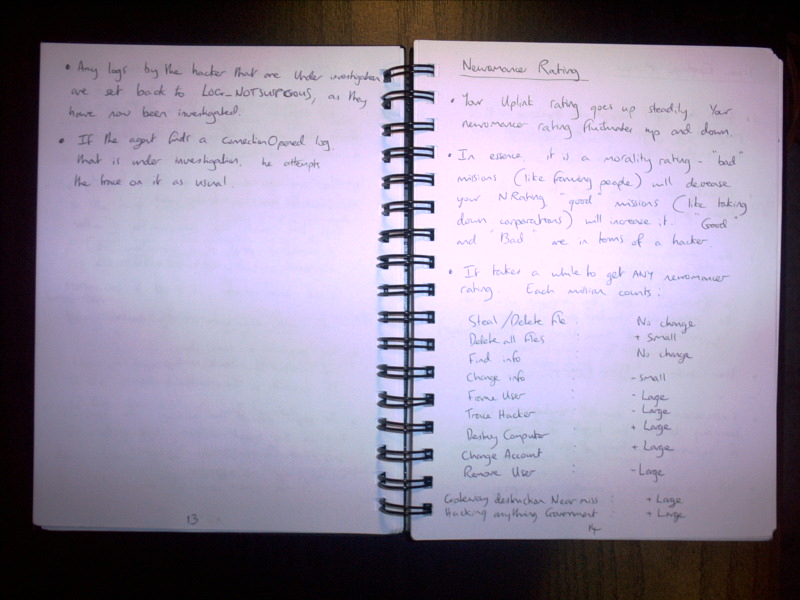 • Any logs by the hacker that are under investigation
are set back to LOG_NOTSUSPICIOUS, as they
have now been investigated.
• If the agent finds a connectionOpened log,
that is under investigation, he attempts
the trace on it as usual.
13
Neuromancer Rating
• Your Uplink rating goes up steadily. Your
neuromancer rating fluctuates up and down.
• In essence, it is a morality rating - "bad"
missions (like framing people) will decrease
your NRating "good" missions (like taking
down corporations) will increase it. "Good"
and "Bad" are in terms of a hacker
• It takes a while to get ANY neuromancer
rating. Each mission counts:
Steal/Delete file : No change
Delete all files : + Small
Find info : No change
Change info : - small
Frame User : - Large
Trace Hacker : - Large
Destroy Computer : + Large
Change Account : + Large
Remove User : - Large
Gateway destruction Near miss : + Large
Hacking anything Government : + Large
14